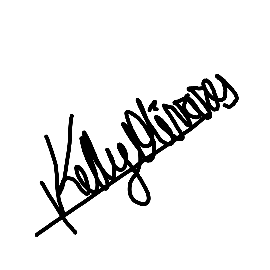 Kelly Olivares